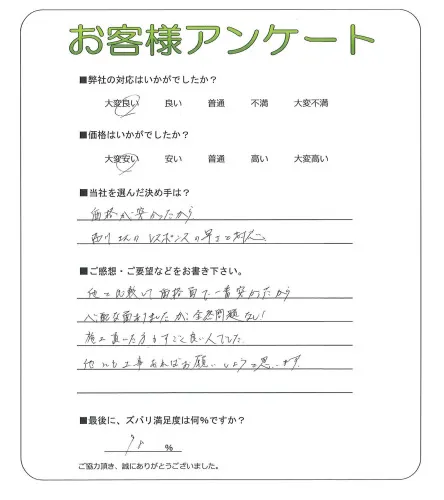 お客様アンケート
■弊社の対応はいかがでしたか?
大変良い 良い 普通 不満 大変不満
■価格はいかがでしたか?
大変安い 安い 普通 高い 大変高い
■当社を選んだ決め手は?
価格が安かったから
西川さんのレスポンスの早さと対応
■ご感想・ご要望などをお書き下さい。
他と比較して価格面で一番安かったから
心配な面ありましたが全然問題なし!
施工頂いた方もすごく良い人でした
他にも工事あればお願いしようと思います
■最後に、ズバリ満足度は何%ですか?
%
ご協力頂き、誠にありがとうございました。